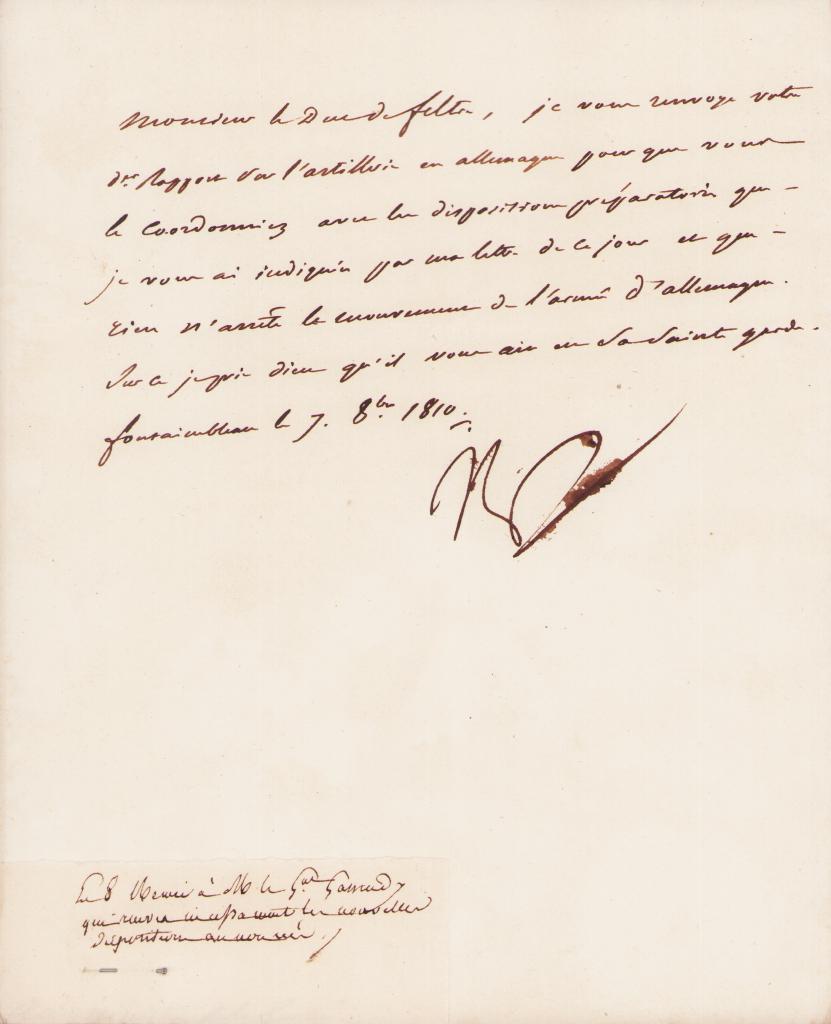 Monsieur le Duc de feltre, je vous renvoye votre
der rapport sur l'artillerie en allemagne pour que vous
le coordonniez avec les dispositions préparatoires que
je vous ai indiquées par ma lettre de ce jour et que
rien n'arrête le mouvement de l'armée d'allemagne.
Sur ce je prie dieu qu'il vous ait en sa sainte garde.
fontainebleau le 7. 8bre 1810.
Le 8 Renvoié à M le Gal
qui recevra incessamment les nouvelles
dispositions